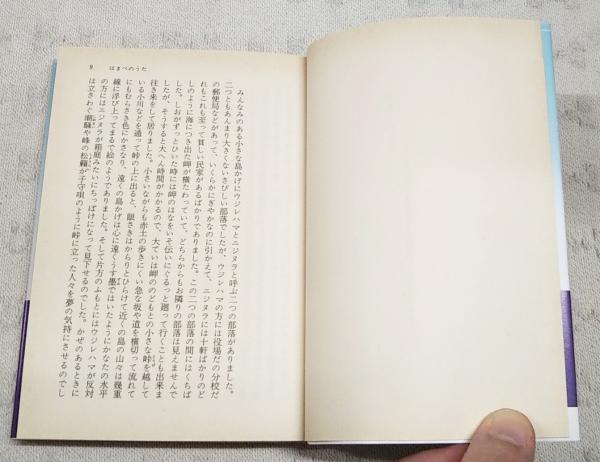 9 はまべのうた
みんなみのある小さな島かげにウジレハマとニジヌラと呼ぶ二つの部落がありました。
二つともあんまり大きくないさびしい部落でしたが、ウジレハマの方には役場だの分校だ
の郵便局などがあって、いくらかにぎやかなのに引かえて、ニジヌラには十軒ばかりのど
れもこれも至って貧しい民家があるばかりでありました。この二つの部落の間にはくちば
しのように海につき出た岬が横たわっていて、どちらからもお隣りの部落は見えませんで
した。しおがずっとひいた時には岬のはなをいそ伝いにぐるっと廻って行くことも出来ま
したが、そうすると大へん時間がかかるので、大ていは岬ののどもとの小さな峠を越して
往き来をして居りました。小さいながらも赤土の歩きにくい急な坂や道を横切って流れて
いる小川などを通って峠の上に出ると、眼さきはからりとひらけて近くの島の山々は幾重
にもむらさき色にかさなり、遠くの島かげは心に遠くうす墨ではいたようにかなたの水平
線に浮び上ってまるで絵のようでありました。そして片方のふもとにはウジレハマが反対
の方にはニジヌラが箱庭みたいにちっぽけになって見下せるのでした。かぜのあるときに
は立さわぐ潮騒や峰の松籟が子守唄のように峠に立った人々を夢の気持にさせるのでし